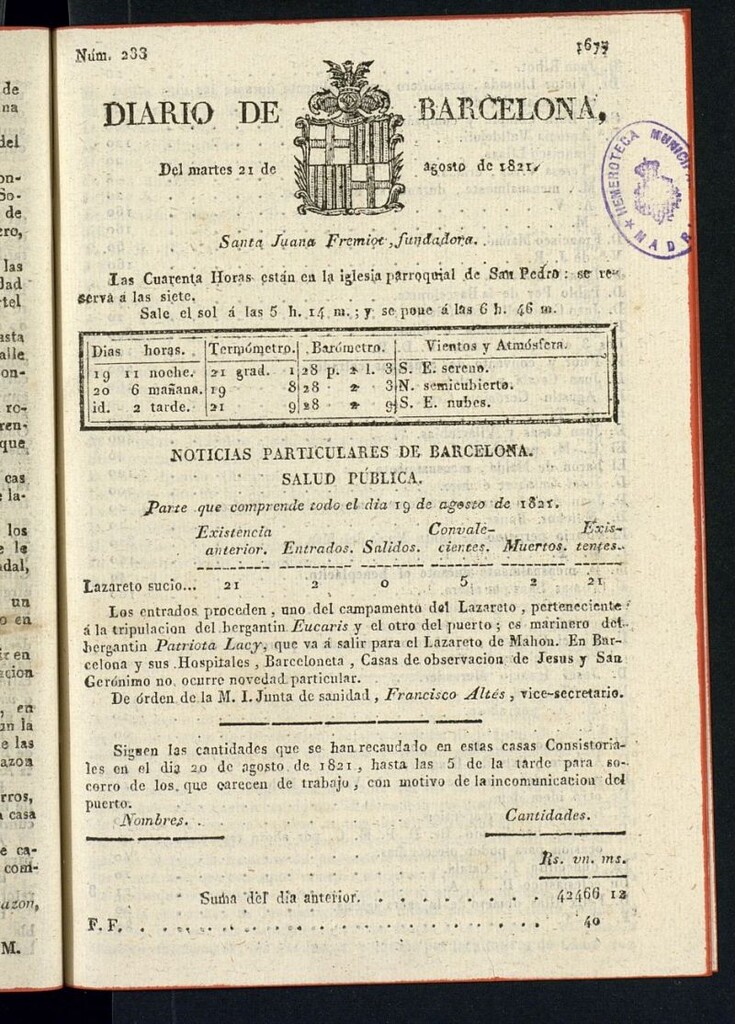 Núm. 233
1677
DIARIO DE BARCELONA,
Del martes 21 de agosto de 1821.
HEMEROTECA MUNICIPAL
MADR
Santa Juana Fremiot, fundadora.
Las Cuarenta Horas están en la iglesia parroquial de San Pedro: se re-
serva á las siete.
Sale el sol á las 5 h. 14 m.; y se pone á las 6 h. 46 m.
Dias horas. Termómetro. Barómetro. Vientos y Atmósfera.
19 11 noche. 21 grad. 1 28 p. 2 l. 3 S. E. sereno.
20 6 mañana. 19 8 28 2 3 N. semicubierto.
id. 2 tarde. 21 9 28 2 9 S. E. nubes.
NOTICIAS PARTICULARES DE BARCELONA.
SALUD PÚBLICA.
Parte que comprende todo el dia 19 de agosto de 1821.
Existencia Convale- Exis-
anterior. Entrados. Salidos. cientes. Muertos. tentes.
Lazareto sucio... 21 2 0 5 2 21
Los entrados proceden, uno del campamento del Lazareto, perteneciente
á la tripulacion del bergantin Eucaris y el otro del puerto; es marinero del
bergantin Patriota Lacy, que va á salir para el Lazareto de Mahon. En Bar-
celona y sus Hospitales, Barceloneta, Casas de observacion de Jesus y San
Gerónimo no ocurre novedad particular.
De órden de la M. I. Junta de sanidad, Francisco Altés, vice-secretario.
Siguen las cantidades que se han recaudado en estas casas Consistoria-
les en el dia 20 de agosto de 1821, hasta las 5 de la tarde para so-
corro de los que carecen de trabajo, con motivo de la incomunicacion del
puerto.
Nombres. Cantidades.
Rs. vn. ms.
Suma del dia anterior. . . . . . . . . . 42466 12
F. F. . . . . . . . . . . . . . . . . . . . 40